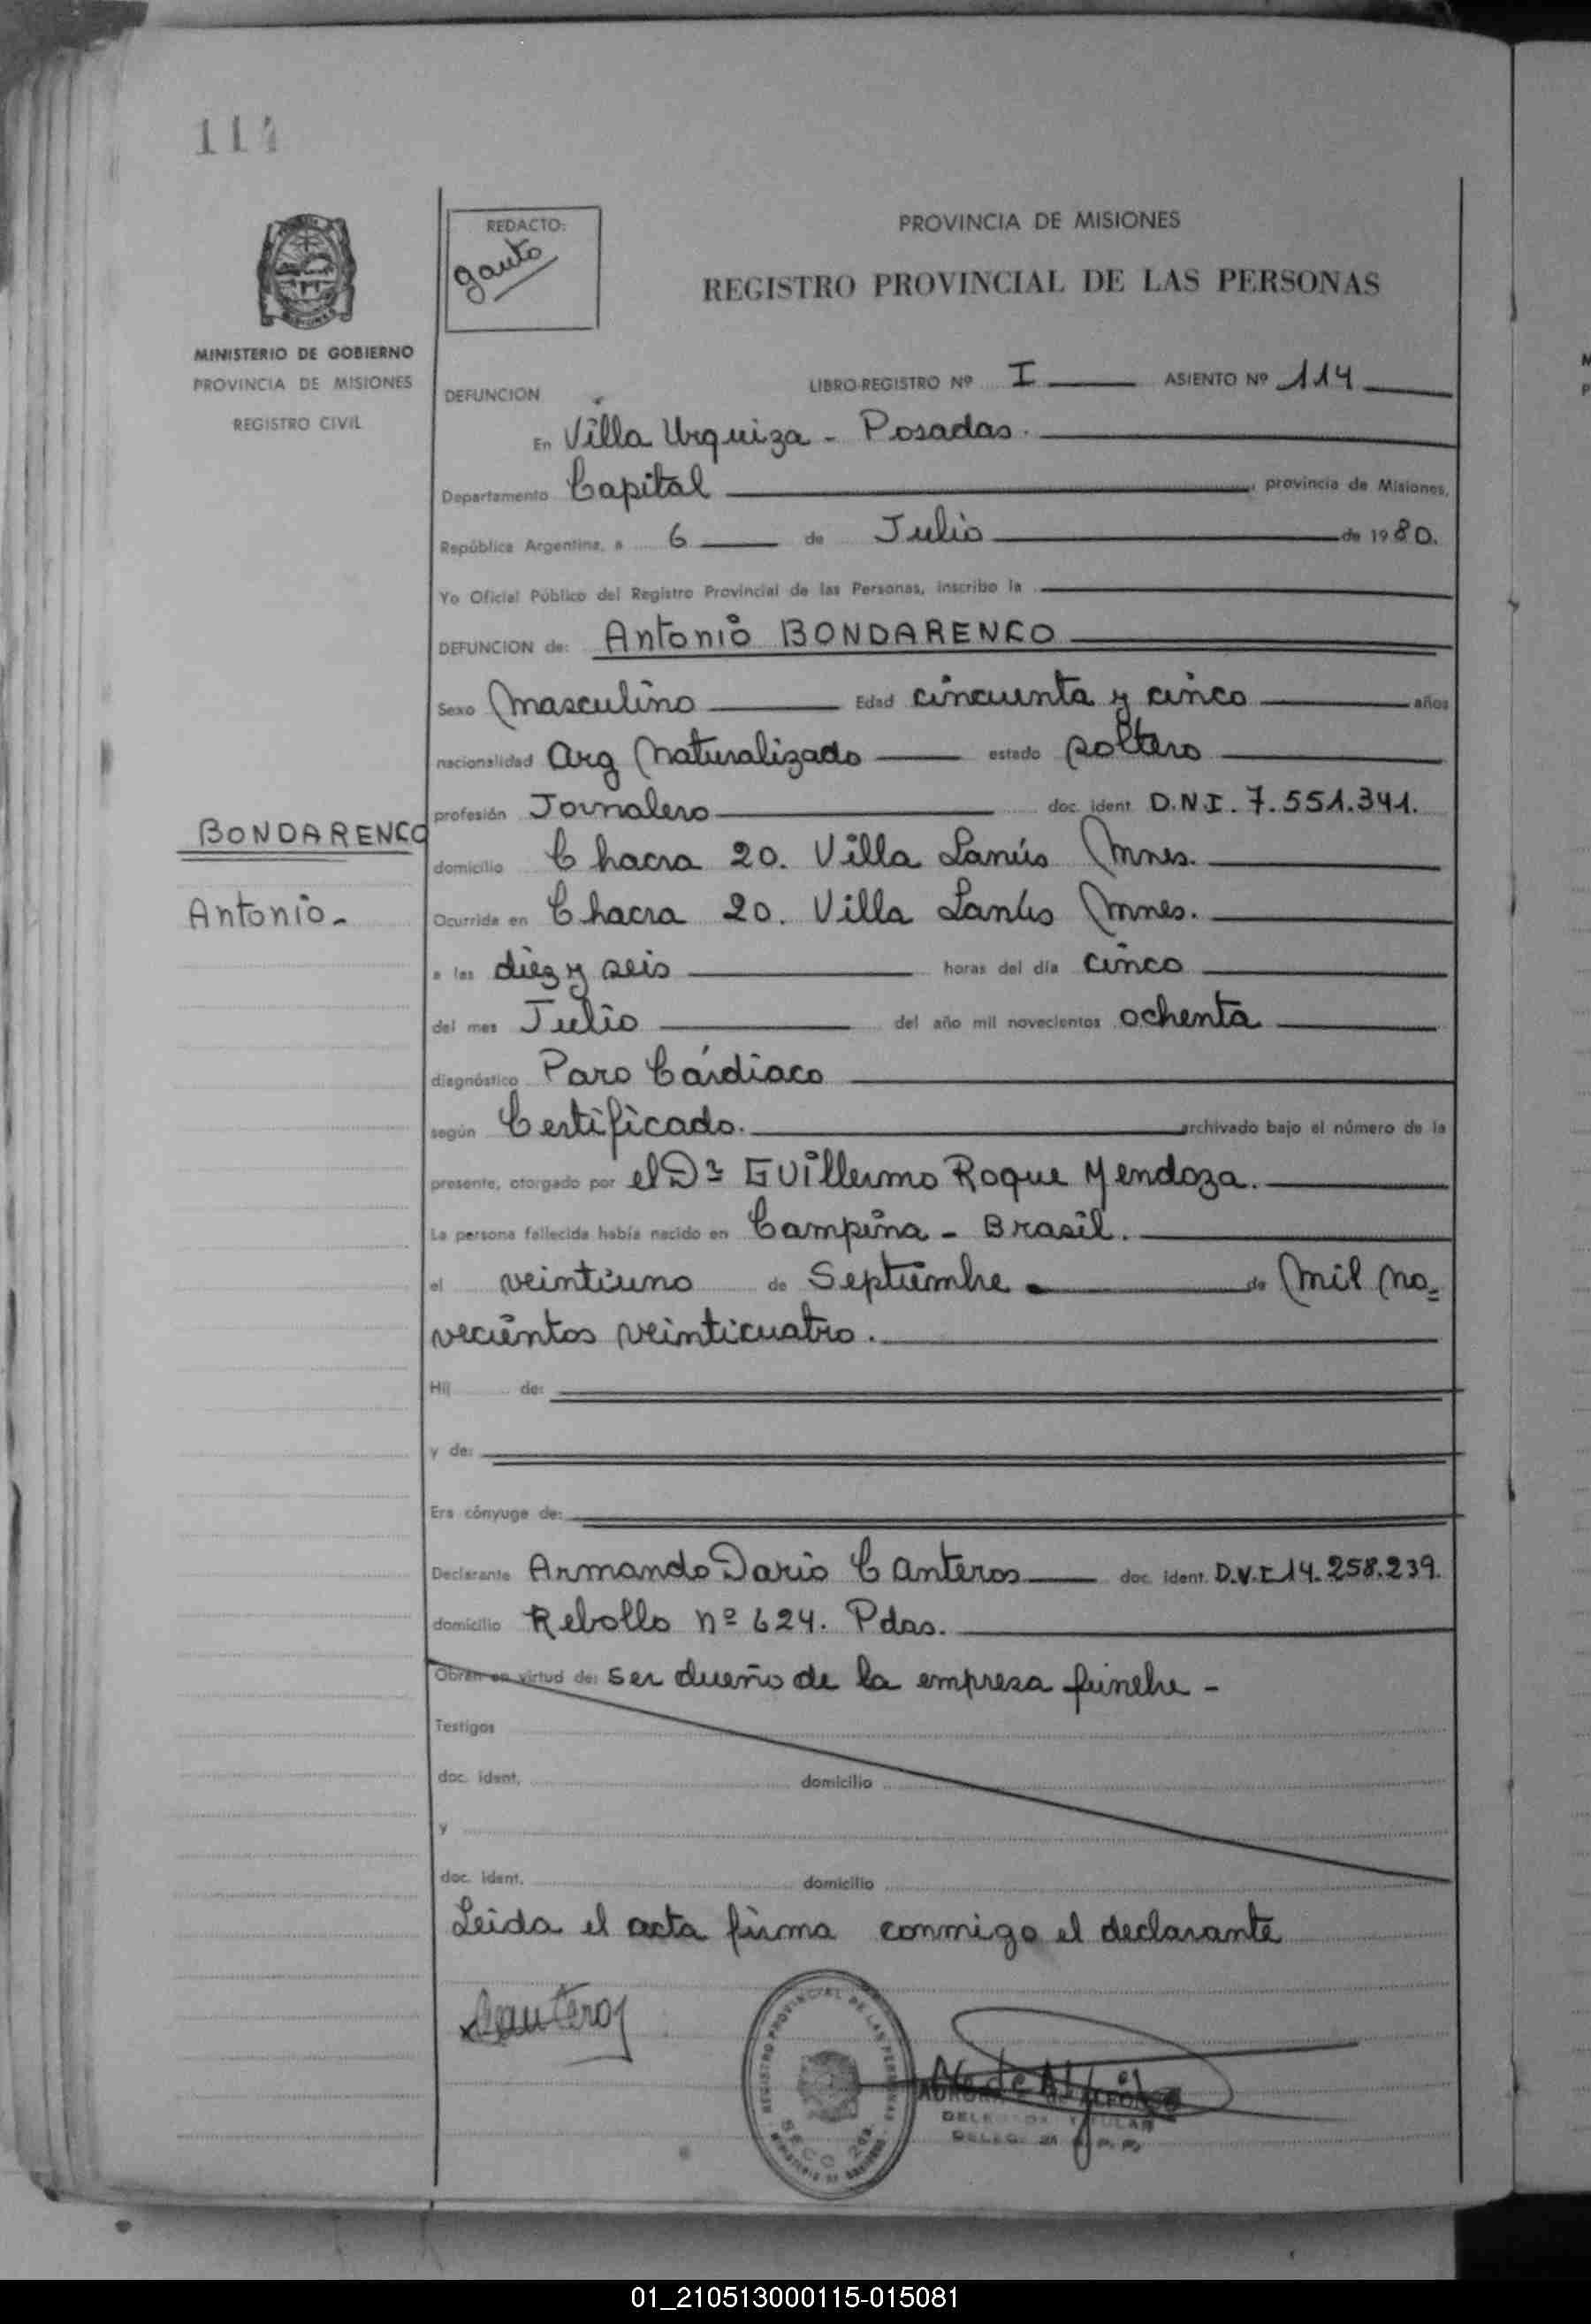 114
REDACTO:
Gauto
PROVINCIA DE MISIONES
REGISTRO PROVINCIAL DE LAS PERSONAS
MINISTERIO DE GOBIERNO
PROVINCIA DE MISIONES
REGISTRO CIVIL
DEFUNCION LIBRO-REGISTRO Nº I ASIENTO Nº 114
En Villa Urquiza - Posadas.
Departamento Capital , provincia de Misiones,
República Argentina, a 6 de Julio de 1980.
Yo Oficial Público del Registro Provincial de las Personas, inscribo la
DEFUNCION de: Antonio BONDARENCO
Sexo Masculino Edad cincuenta y cinco años
nacionalidad Arg Naturalizado estado soltero
profesión Jornalero doc. ident. D.N.I. 7.551.341.
BONDARENCO
domicilio Chacra 20. Villa Lanús Mnes.
Antonio-
Ocurrida en Chacra 20. Villa Lanús Mnes.
a las diez y seis horas del día cinco
del mes Julio del año mil novecientos ochenta
diagnóstico Paro Cárdiaco
según Certificado. archivado bajo el número de la
presente, otorgado por el Dr Guillermo Roque Mendoza.
La persona fallecida había nacido en Campina - Brasil.
el veintiuno de Septiembre de Mil no=
vecientos veinticuatro.
Hij de:
y de:
Era cónyuge de:
Declarante Armando Dario Canteros doc. ident. D.N.I 14.258.239.
domicilio Rebollo nº 624. Pdas.
Obran en virtud de: ser dueño de la empresa fúnebre -
Testigos
doc. ident. domicilio
y
doc. ident. domicilio
Leida el acta firma conmigo el declarante
Canteros
REGISTRO PROVINCIAL DE LAS PERSONAS
DELEGADA TITULAR
01_210513000115-015081